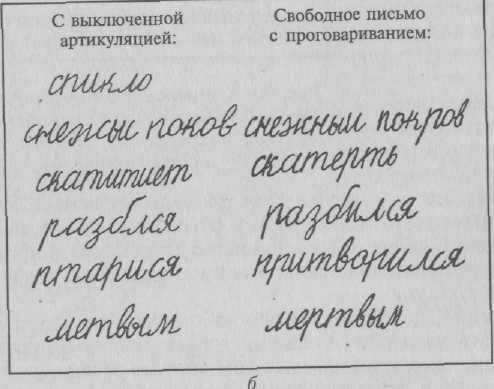 С выключенной артикуляцией:
Свободное письмо с проговариванием:
спикло
снежсы поков снежный покров
скатитиет скатерть
разблся разбился
птарися притворился
метвым мертвым
б